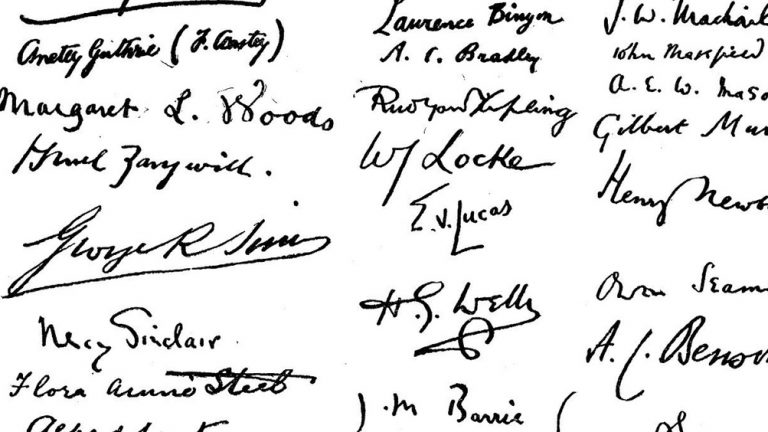 Anstey Guthrie (F. Anstey)
Margaret L. Woods
Israel Zangwill.
George R Sims
May Sinclair
Flora Annie Steel
Laurence Binyon
A. C. Bradley
Rudyard Kipling
W J Locke
E. V. Lucas
H. G. Wells
J. M Barrie
J. W. Mackail
John Masefield
A. E. W. Mason
Gilbert Mur
Henry Newb
Owen Seama
A. C. Benson